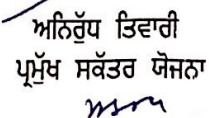 ਅਨਿਰੁੱਧ ਤਿਵਾਰੀ
ਪ੍ਰਮੁੱਖ ਸਕੱਤਰ ਯੋਜਨਾ